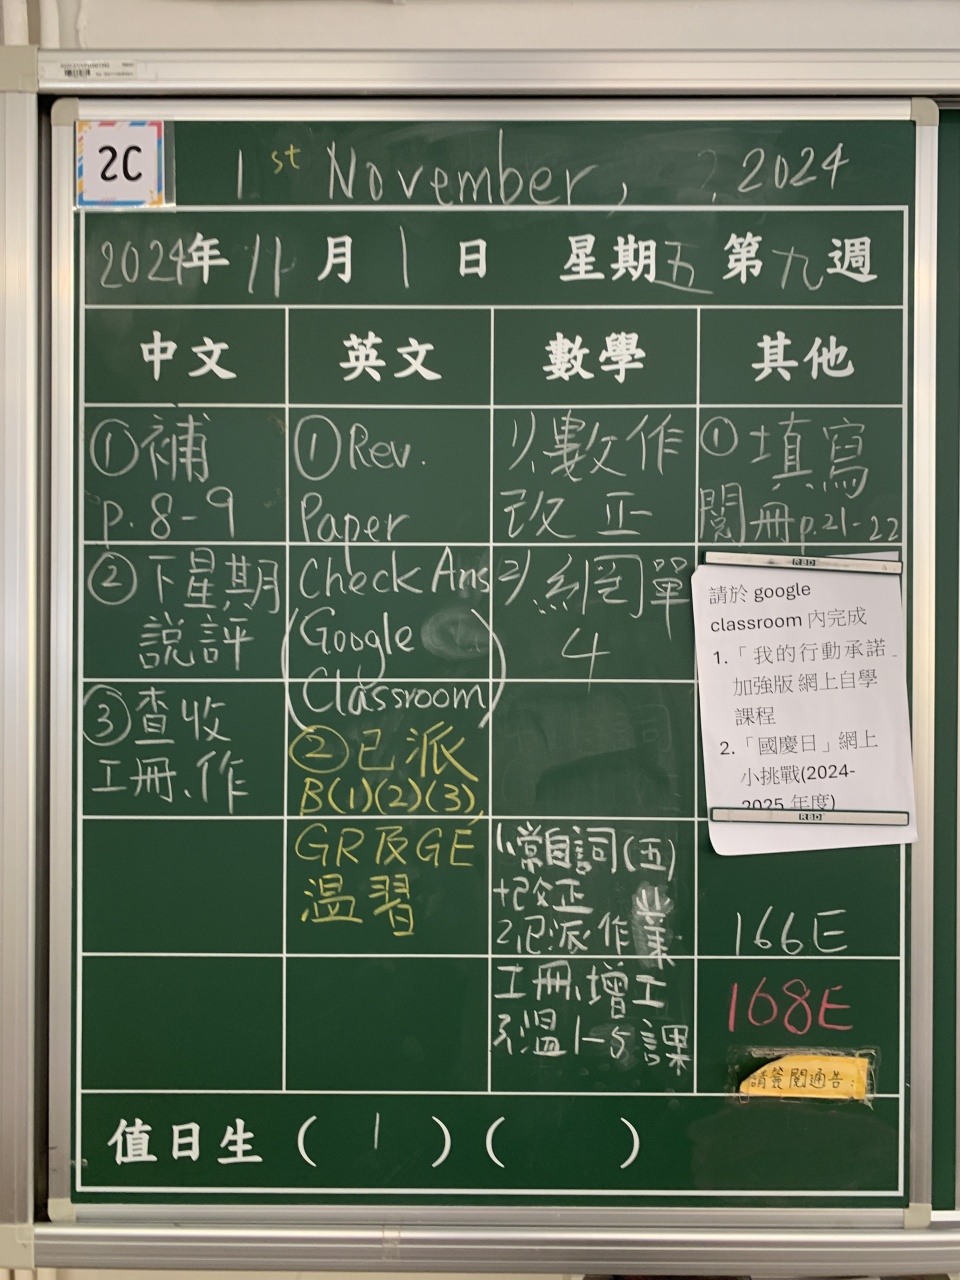 2C
1st November, 2024
2024年 11月 1日 星期五 第九週
中文
英文
數學
其他
①補
p. 8-9
②下星期
說評
③查收
工冊、作
①Rev.
Paper
Check Ans
(Google
Classroom)
②已派
B(1)(2)(3),
GR及GE
溫習
1)數作
改正
2)網單
4
1.常自詞(五)
+改正
2.已派作業
工冊、增工
3.溫1-5課
①填寫
閱冊p.21-22
RBD
請於 google
classroom 內完成
1.「我的行動承諾_
加強版 網上自學
課程
2.「國慶日」網上
小挑戰(2024-
2025 年度)
RBD
166E
168E
請簽閱通告:
值日生 ( 1 ) ( )